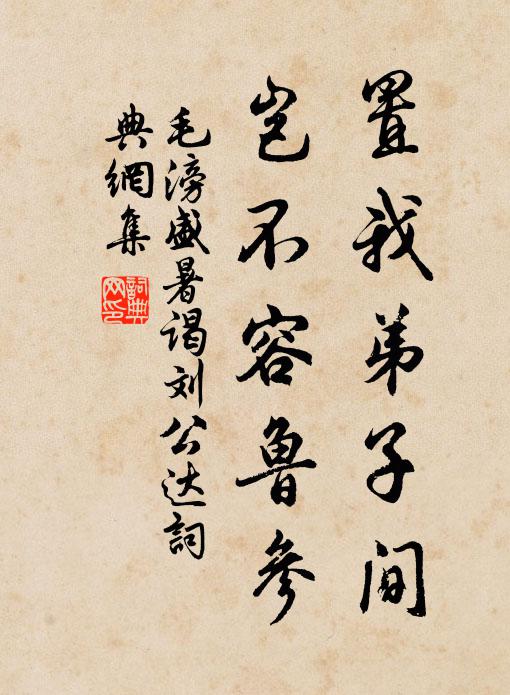 置我弟子间
岂不容鲁参
毛滂盛暑谒刘公达詞
典網集
詞典网印